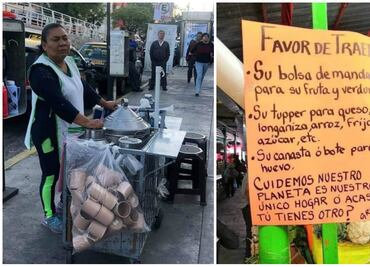 FAVOR DE TRAE
• SU BOLSA DE MANDA
PARA SU FRUTA Y VERDU
• SU TUPPER PARA QUESO,
LONGANIZA, ARROZ, FRIJO
AZÚCAR, ETC.
• SU CANASTA Ó BOTE PARA
HUEVO.
CUIDEMOS NUESTRO
PLANETA ES NUESTRO
ÚNICO HOGAR Ó ACAS
TÚ TIENES OTRO?